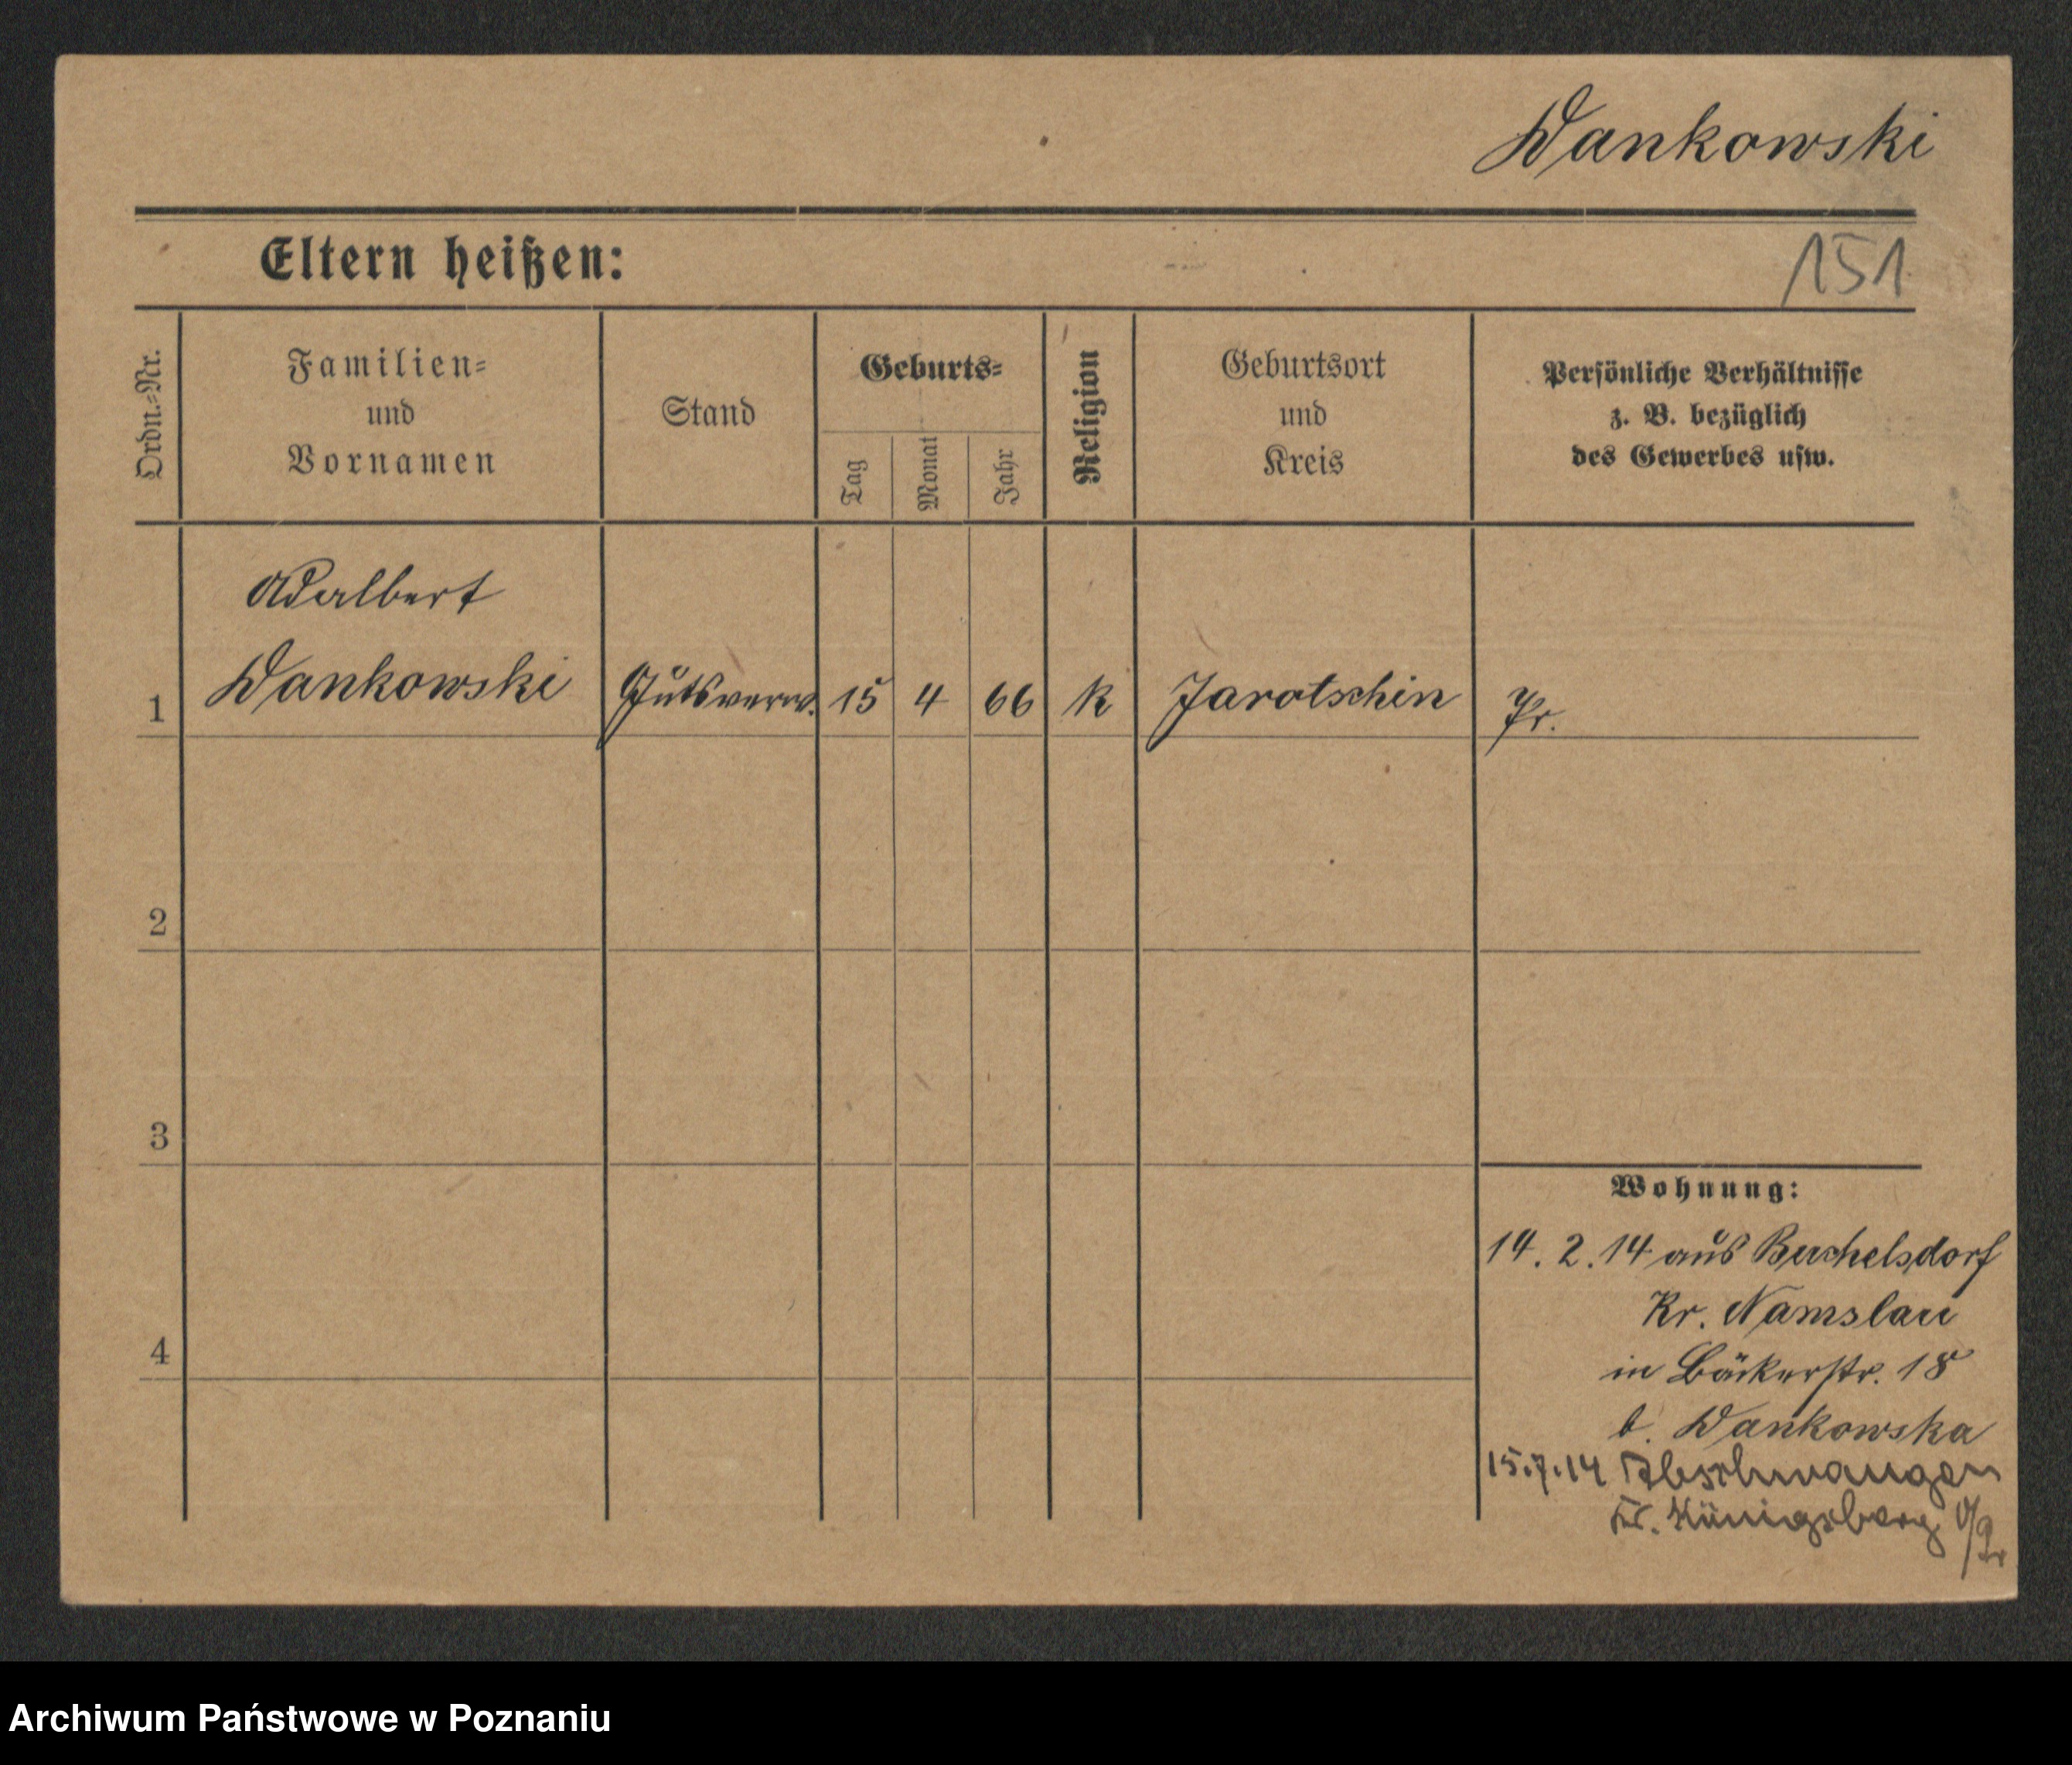 Dankowski
Eltern heißen:
151
Ordn.-Nr.
Familien-
und
Vornamen
Stand
Geburts-
Tag
Monat
Jahr
Religion
Geburtsort
und
Kreis
Persönliche Verhältnisse
z. B. bezüglich
des Gewerbes usw.
Adalbert
1 Dankowski Gutsverw. 15 4 66 k Jarotschin Pr.
2
3
Wohnung:
14.2.14 aus Buchelsdorf
Kr. Namslau
4
in Bäckerstr. 18
b. Dankowska
15.7.14 Abschwangen
Kr. Königsberg O/Pr
Archiwum Państwowe w Poznaniu